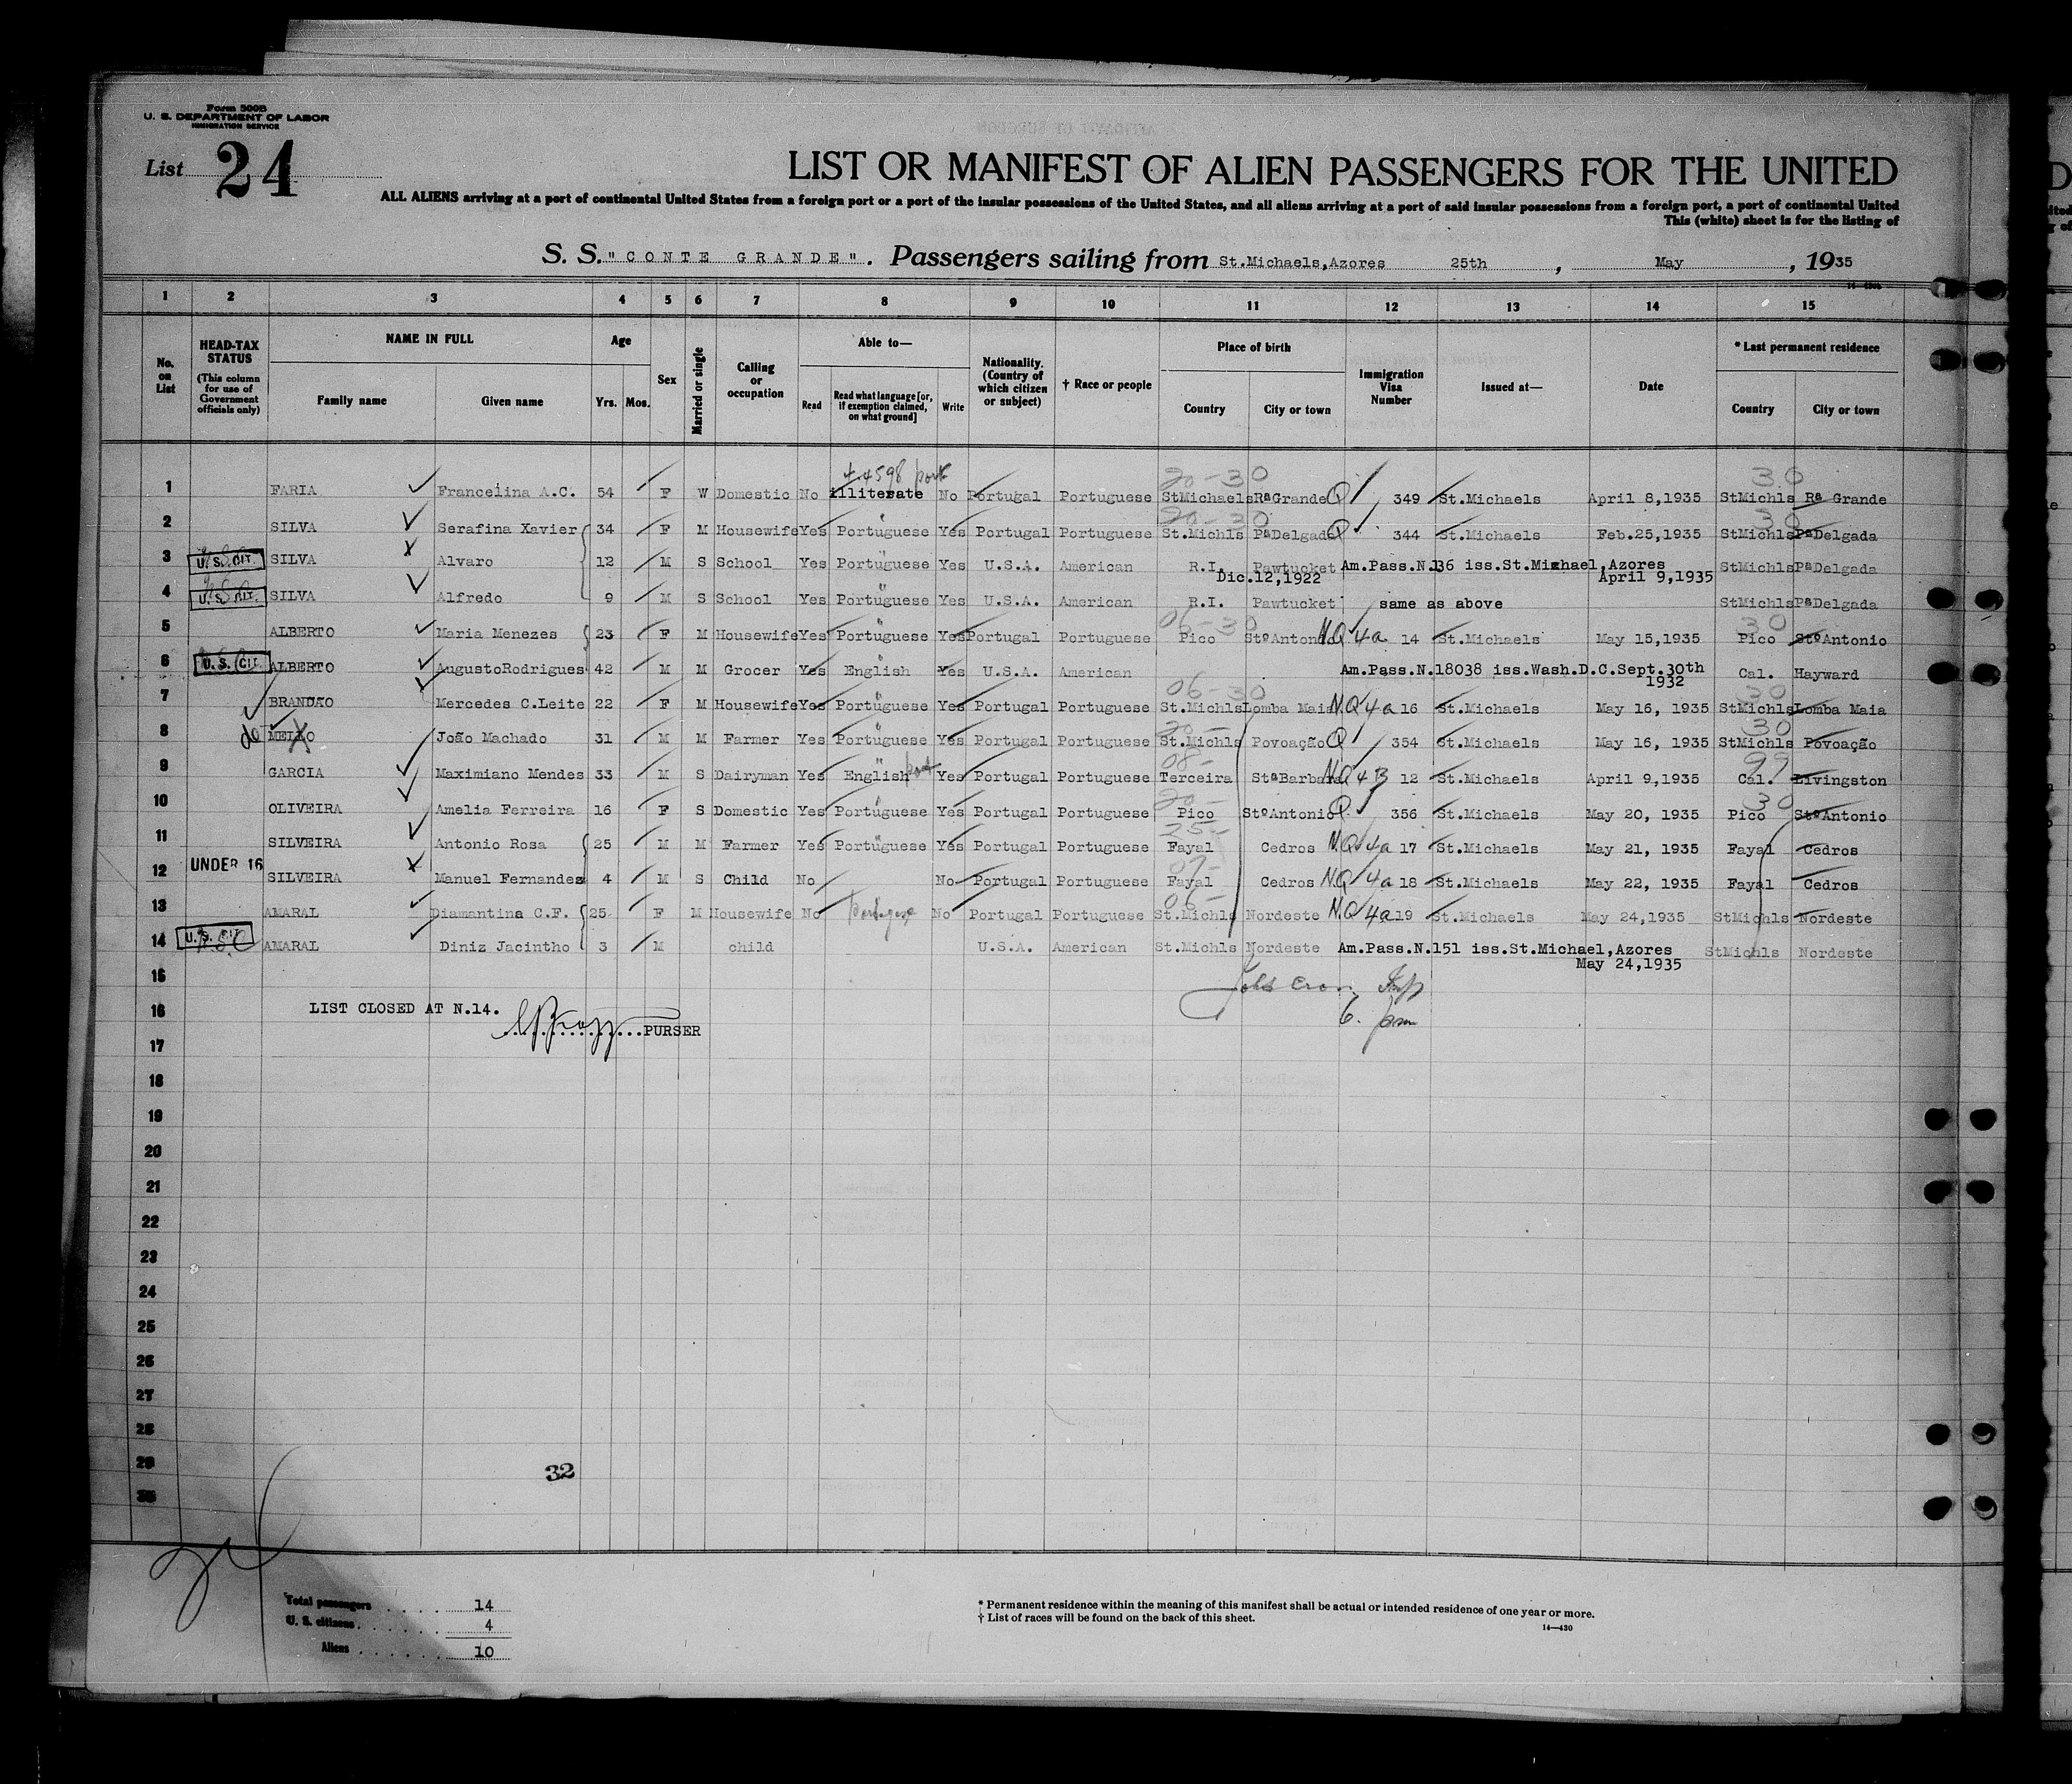 Form 500B
U. S. DEPARTMENT OF LABOR
IMMIGRATION SERVICE
List 24
LIST OR MANIFEST OF ALIEN PASSENGERS FOR THE UNITED
ALL ALIENS arriving at a port of continental United States from a foreign port or a port of the insular possessions of the United States, and all aliens arriving at a port of said insular possessions from a foreign port, a port of continental United
This (white) sheet is for the listing of
S. S. "CONTE GRANDE". Passengers sailing from St.Michaels,Azores 25th , May , 1935
1 2 3 4 5 6 7 8 9 10 11 12 13 14 15
No. on List
HEAD-TAX STATUS (This column for use of Government officials only)
NAME IN FULL
Family name Given name
Age
Yrs. Mos.
Sex
Married or single
Calling or occupation
Able to—
Read Read what language [or, if exemption claimed, on what ground] Write
Nationality. (Country of which citizen or subject)
† Race or people
Place of birth
Country City or town
Immigration Visa Number
Issued at—
Date
* Last permanent residence
Country City or town
44598 port 20-30 30
1 FARIA Francelina A.C. 54 F W Domestic No illiterate No Portugal Portuguese StMichaels RªGrande Q 349 St.Michaels April 8,1935 StMichls Rª Grande
20-30 30
2 SILVA Serafina Xavier 34 F M Housewife Yes Portuguese Yes Portugal Portuguese St.Michls PªDelgada Q 344 St.Michaels Feb.25,1935 StMichls PªDelgada
3 U. S. CIT. SILVA Alvaro 12 M S School Yes Portuguese Yes U.S.A. American R.I. Pawtucket Am.Pass.N.136 iss.St.Michael,Azores StMichls PªDelgada
Dic.12,1922 April 9,1935
4 U. S. CIT. SILVA Alfredo 9 M S School Yes Portuguese Yes U.S.A. American R.I. Pawtucket same as above StMichls PªDelgada
06-30 30
5 ALBERTO Maria Menezes 23 F M Housewife Yes Portuguese Yes Portugal Portuguese Pico StºAntonio NQ 4a 14 St.Michaels May 15,1935 Pico StºAntonio
6 U. S. CIT. ALBERTO AugustoRodrigues 42 M M Grocer Yes English Yes U.S.A. American Am.Pass.N.18038 iss.Wash.D.C.Sept.30th Cal. Hayward
1932
06-30 30
7 BRANDÃO Mercedes C.Leite 22 F M Housewife Yes Portuguese Yes Portugal Portuguese St.Michls Lomba Maia NQ 4a 16 St.Michaels May 16, 1935 StMichls Lomba Maia
20- 30
8 de MELLO João Machado 31 M M Farmer Yes Portuguese Yes Portugal Portuguese St.Michls Povoação Q 354 St.Michaels May 16, 1935 StMichls Povoação
08- 99
9 GARCIA Maximiano Mendes 33 M S Dairyman Yes English port Yes Portugal Portuguese Terceira StªBarbara NQ 4B 12 St.Michaels April 9,1935 Cal. Livingston
20- 30
10 OLIVEIRA Amelia Ferreira 16 F S Domestic Yes Portuguese Yes Portugal Portuguese Pico StºAntonio Q 356 St.Michaels May 20, 1935 Pico StºAntonio
25-
11 SILVEIRA Antonio Rosa 25 M M Farmer Yes Portuguese Yes Portugal Portuguese Fayal Cedros NQ 4a 17 St.Michaels May 21, 1935 Fayal Cedros
07-
12 UNDER 16 SILVEIRA Manuel Fernandes 4 M S Child No No Portugal Portuguese Fayal Cedros NQ 4a 18 St.Michaels May 22, 1935 Fayal Cedros
06-
13 AMARAL Diamantina C.F. 25 F M Housewife No Portuguese No Portugal Portuguese St.Michls Nordeste NQ 4a 19 St.Michaels May 24,1935 StMichls Nordeste
14 U. S. CIT. AMARAL Diniz Jacintho 3 M child U.S.A. American St.Michls Nordeste Am.Pass.N.151 iss.St.Michael,Azores StMichls Nordeste
May 24,1935
15
16 LIST CLOSED AT N.14.
PURSER
17
18
19
20
21
22
23
24
25
26
27
28
29
30
32
Total passengers 14
U. S. citizens 4
Aliens 10
* Permanent residence within the meaning of this manifest shall be actual or intended residence of one year or more.
† List of races will be found on the back of this sheet.
14—430